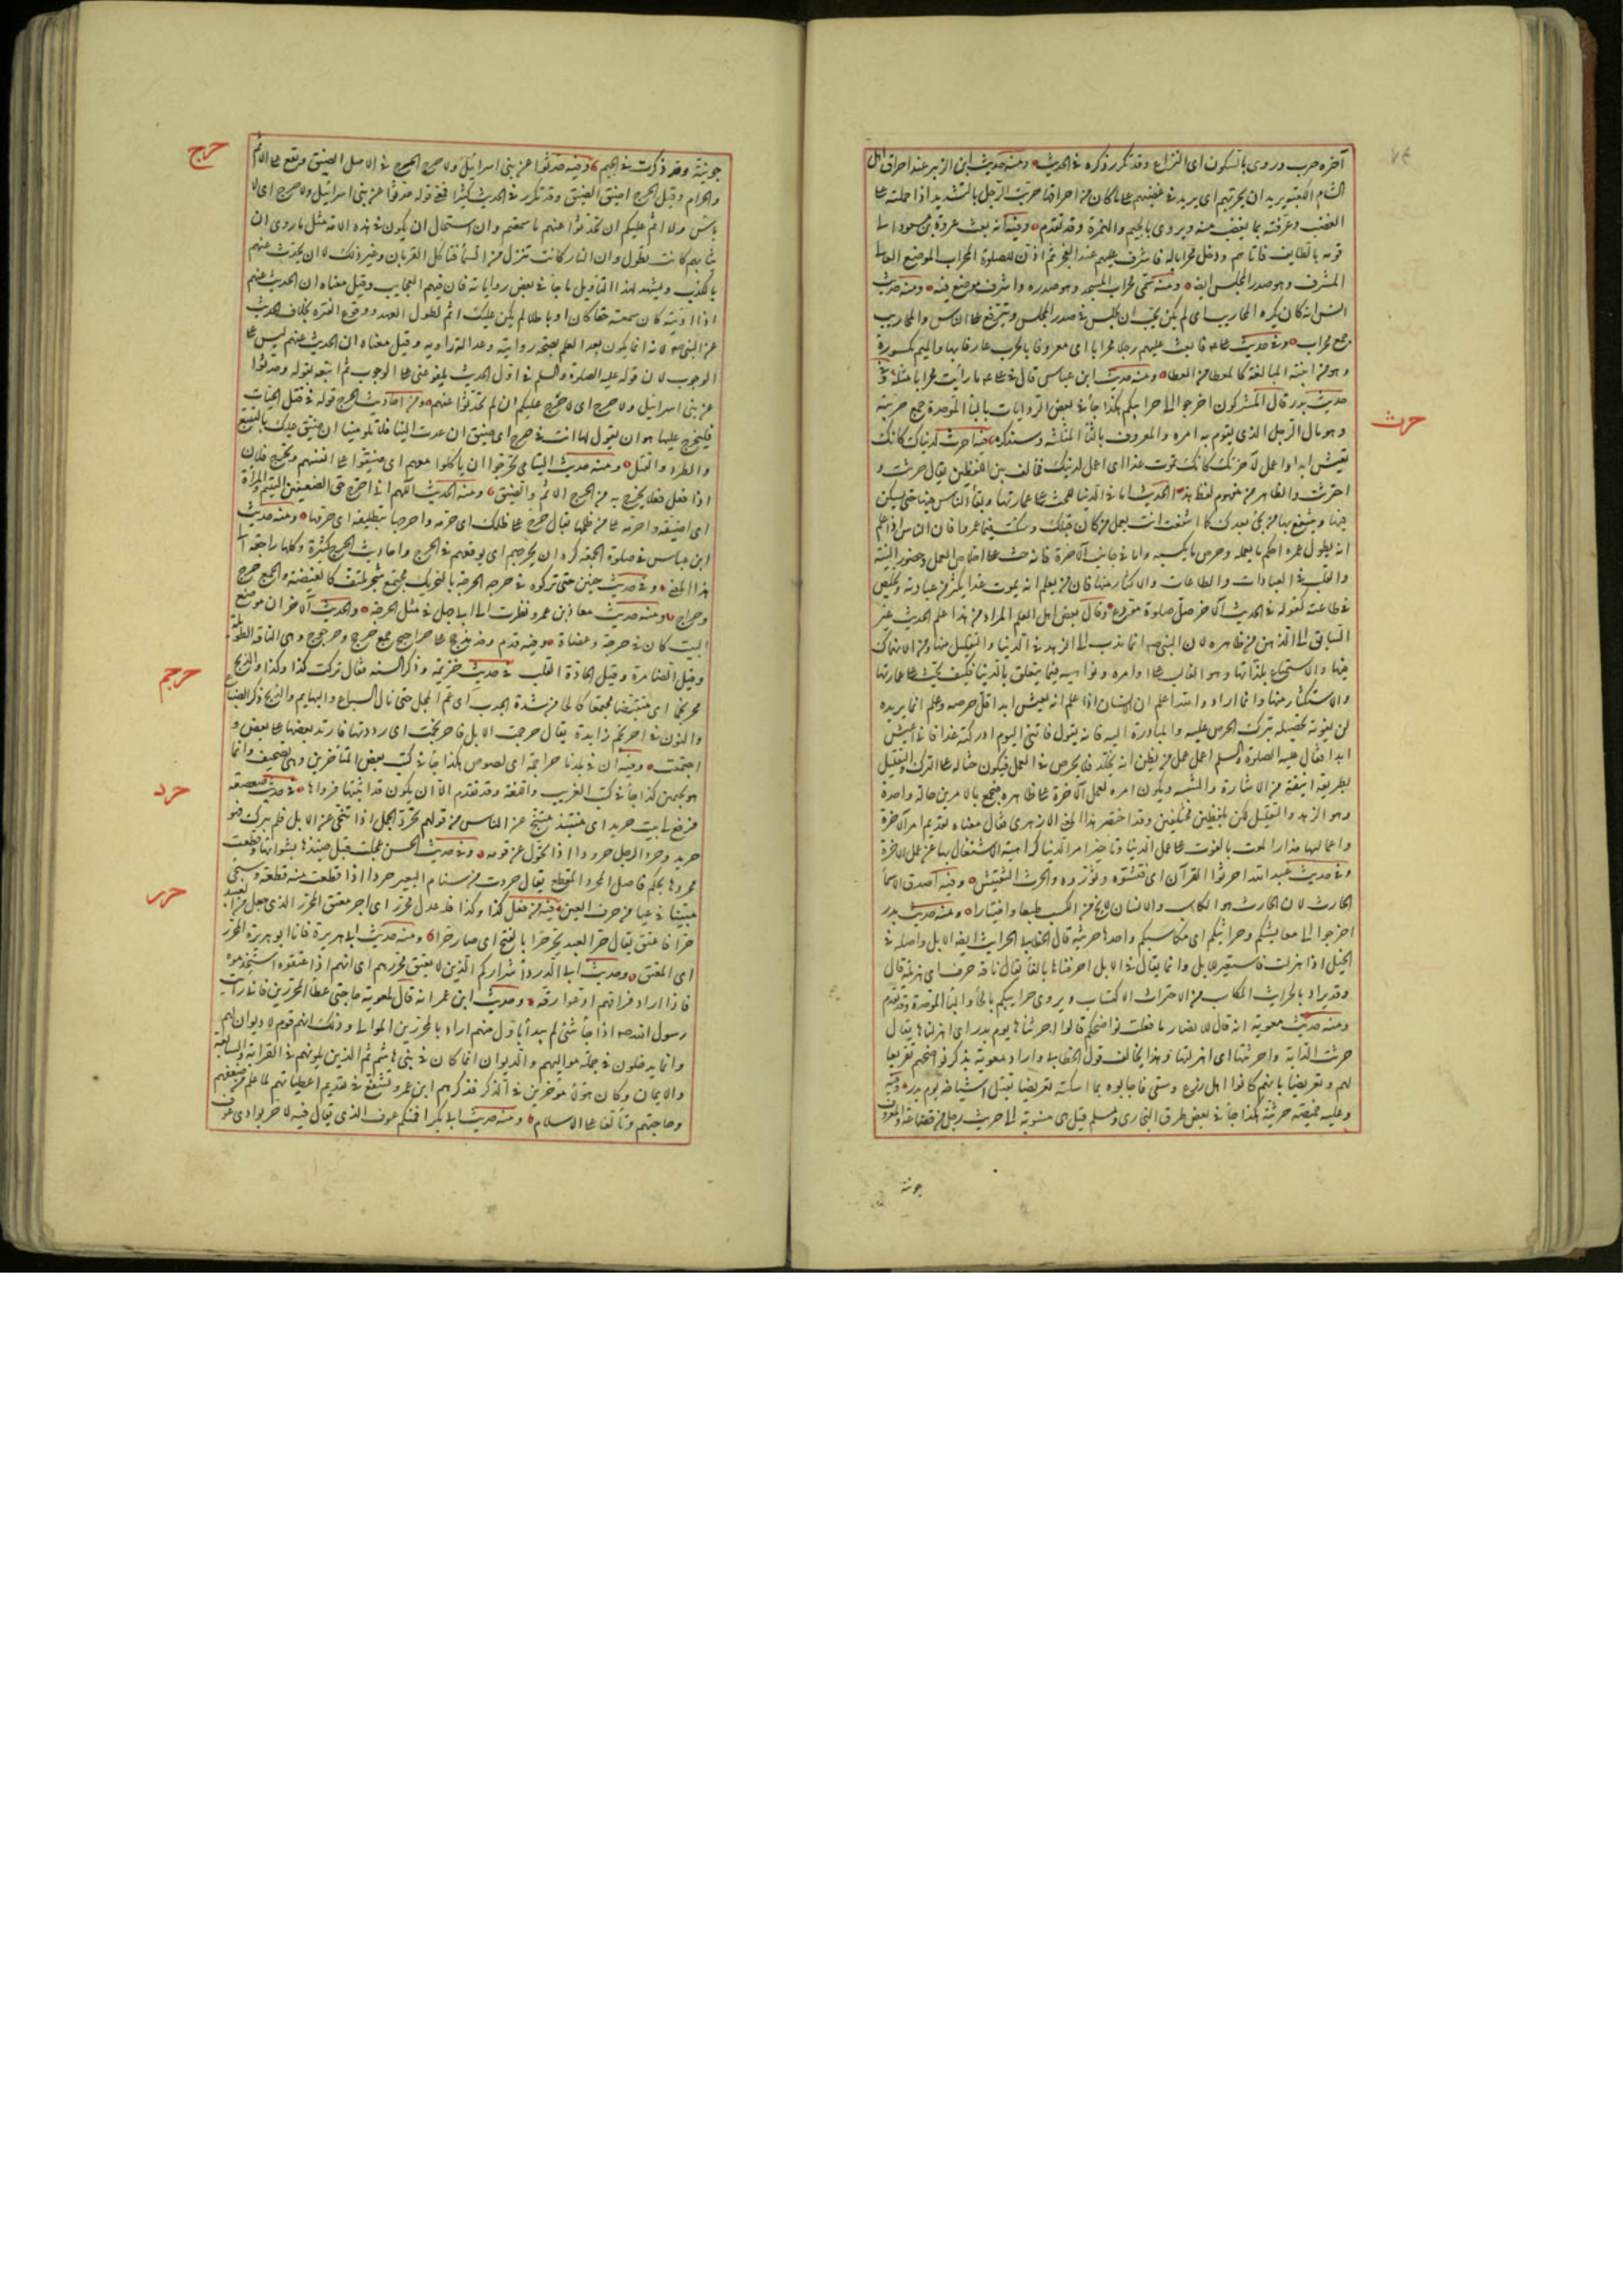 آخره حرب وروى بالسكون اى النزاع وقد تكرر ذكره فى الحديث ومنه حديث ابن الزبير عند احراق اهل
الشام الكعبة يريد ان يحربهم اى يزيد فى غضبهم على ما كان من احراقها حربت الرجل بالتشديد اذا حملته على
الغضب وعرفته بما يغضب منه ويروى بالجيم والهمزة وقد تقدم وفيه انه بعث عروة بن مسعود الى
قومه بالطايف فاتاهم ودخل محرابا له فاشرف عليهم عند الفجر ثم اذن للصلوة المحراب الموضع العالى
المشرف وهو صدر المجلس ايضا ومنه سمى محراب المسجد وهو صدره واشرف موضع فيه ومنه حديث
انس انه كان يكره المحاريب اى لم يكن يحب ان يجلس فى صدر المجلس ويترفع على الناس والمحاريب
جمع محراب وفى حديث على فابعث عليهم رجلا محرابا اى معروفا بالحرب عارفا بها والميم مكسورة
وهو من ابنية المبالغة كالمعطا من العطا ومنه حديث ابن عباس قال فى على ما رأيت محرابا مثله وفى
حديث بدر قال المشركون اخرجوا الى حرايبكم هكذا جا فى بعض الروايات بالبا الموحدة جمع حريبة
وهو مال الرجل الذى يقوم به امره والمعروف بالثا المثلثة وسنذكره
حرث
فيه احرث لدنياك كانك
تعيش ابدا واعمل لآخرتك كانك تموت غدا اى اعمل لدنيك فخالف بين اللفظين يقال حرثت و
احترثت والظاهر من مفهوم لفظ هذا الحديث اما فى الدنيا للحث على عمارتها وبقا الناس فيها حتى يسكن
فيها وينتفع بها من يجى بعدك كما انتفعت انت بعمل من كان قبلك وسكنت فيما عمروا فان الناس اذا علم
انه يطول عمره احكم ما يعمله وحرص ما يكسبه واما فى جانب الآخرة فانه حث على اخلاص العمل وحضور النية
والقلب فى العبادات والطاعات والاكثار منها فان من يعلم انه يموت غدا يكثر من عبادته ويخلص
فى طاعته كقوله فى الحديث الآخر صل صلوة مودع وقال بعض اهل العلم المراد من هذا علم الحديث غير
السابق الى الذهن من ظاهره لان النبى صه انما ندب الى الزهد فى الدنيا والتقليل منها ومن الانهماك
فيها والاستمتاع بلذاتها وهو الغالب على اوامره ونواهيه فيما يتعلق بالدنيا فكيف يحث على عمارتها
والاستكثار منها وانما اراد والله اعلم ان الانسان اذا علم انه يعيش ابدا قل حرصه وعلم انما يريده
لن يفوته تحصيله بترك الحرص عليه والمبادرة اليه فانه يقول فاتنى اليوم ادركته غدا فانى اعيش
ابدا فقال عليه الصلوة والسلم اعمل عمل من يظن انه يخلد فلا يحرص فى العمل فيكون حثا له على الترك والتقليل
بطريقة انيقة من الاشارة والتنبيه ويكون امره لعمل الآخرة على ظاهره فيجمع بالامرين حالة واحدة
وهو الزهد والتقليل لكن بلفظين مختلفين وقد اختصر هذا المعنى الازهرى فقال معناه تقديم امر الآخرة
واعمالها حذار الموت بالفوت على عمل الدنيا وتاخير امر الدنيا كراهية الاشتغال بها عن عمل الآخرة
وفى حديث عبد الله احرثوا القرآن اى فتشوه وثوروه والحرث التفتيش وفيه اصدق الاسما
الحارث لان الحارث هو الكاسب والانسان لا يخلو من الكسب طبعا واختيارا ومنه حديث بدر
اخرجوا الى معايشكم وحرائثكم اى مكاسبكم واحدها حريثة قال الخطابى الحرايث انضا الابل واصله فى
الخيل اذا هزلت فاستعير للابل وانما يقال فى الابل احرفناها بالفا يقال ناقة حرف اى هزيلة قال
وقد يراد بالحرايث المكاسب من الاحتراث الاكتساب ويروى حرايبكم بالحا والبا الموحدة وقد تقدم
ومنه حديث معوية انه قال للانصار ما فعلت نواضحكم قالوا احرثناها يوم بدر اى اهزلناها يقال
حرثت الدابة واحرثتها اى اهزلتها وهذا يخالف قول الخطابى واراد معوية بذكر نواضحهم تقريعا
لهم وتعريضا بانهم كانوا اهل زرع وسقى فاجابوه بما اسكته تعريضا بقتل اشياخه يوم بدر وفيه
وعليه خميصة حريثية هكذا جا فى بعض طرق البخارى ومسلم قيل هى منسوبة الى حريث رجل من قضاعة والمعروف
جونية
جونية وقد ذكرت فى الجيم
حرج
وفيه حدثوا عن بنى اسرائيل ولا حرج الحرج فى الاصل الضيق ويقع على الاثم
والحرام وقيل الحرج اضيق الضيق وقد تكرر فى الحديث كثيرا فمن قوله حدثوا عن بنى اسرائيل ولا حرج اى لا
بأس ولا اثم عليكم ان تحدثوا عنهم ما سمعتم وان استحال ان يكون فى هذه الامة مثل ما روى ان
ثيابهم كانت تطول وان النار كانت تنزل من السما فتأكل القربان وغير ذلك لا ان يحدث عنهم
بالكذب ويشهد لهذا التاويل ما جا فى بعض رواياته فان فيهم العجايب وقيل معناه ان الحديث عنهم
اذا اديته كان سمعته حقا كان او باطلا لم يكن عليك اثم لطول العهد ووقوع الفترة بخلاف الحديث
عن النبى صه لانه انما يكون بعد العلم بصحة روايته وعدالة راويه وقيل معناه ان الحديث عنهم ليس على
الوجوب لان قوله عليه الصلوة والسلم فى اول الحديث بلغوا عنى على الوجوب ثم اتبعه بقوله وحدثوا
عن بنى اسرائيل ولا حرج اى لا حرج عليكم ان لم تحدثوا عنهم ومن احاديث الحرج قوله فى قتل الحيات
فليحرج عليها هو ان يقول لها انت فى حرج اى ضيق ان عدت الينا فلا تلومينا ان نضيق عليك بالتتبع
والطرد والقتل ومنه حديث اليتامى تحرجوا ان ياكلوا معهم اى ضيقوا على انفسهم وتحرج فلان
اذا فعل فعلا يخرج به من الحرج الاثم والضيق ومنه الحديث اللهم انى احرج حق الضعيفين اليتيم والمرأة
اى اضيقه واحرمه على من ظلمهما يقال حرج على ظلمك اى حرمه واحرجها بتطليقة اى حرمها ومنه حديث
ابن عباس فى صلوة الجمعة كره ان يحرجهم اى يوقعهم فى الحرج واحاديث الحرج كثيرة وكلها راجعة الى
هذا المعنى وفى حديث حنين حتى تركوه فى حرجة الحرجة بالتحريك مجتمع شجر ملتف كالغيضة والجمع حرج
وحراج ومنه حديث معاذ بن عمرو نظرت الى ابى جهل فى مثل الحرجة والحديث الآخر ان موضع
البيت كان فى حرجة وعضاة وفيه قدم وفد مذحج على حراجيج جمع حرجج وحرجوج وهى الناقة الطويلة
وقيل الضامرة وقيل الحادة القلب
حرجم
فى حديث خزيمة وذكر السنة فقال تركت كذا وكذا والذيخ
محرنجما اى منقبضا مجتمعا كالحا من شدة الجدب اى عم المحل حتى نال السباع والبهايم والذيخ ذكر الضباع
والنون فى احرنجم زايدة يقال حرجمت الابل فاحرنجمت اى رددتها فارتد بعضها على بعض و
اجتمعت وفيه ان فى بلدنا حراجمة اى لصوص هكذا جا فى كتب بعض المتأخرين وهى تصحيف وانما
هو بجيمين كذا جا فى كتب الغريب واللغة وقد تقدم الا ان يكون قد اثبتها فرواها
حرد
فى حديث صعصعة
فرفع لى بيت حريد اى منتبذ متنح عن الناس من قولهم تحرد الجمل اذا تنحى عن الابل فلم يبرك فهو
حريد وحرد الرجل حرودا اذا تحول عن قومه وفى حديث الحسن عجلت قبل حنيذها بشوائها وقطعت
محردها بحكم فاصل المحرد المقطع يقال حردت من سنام البعير حردا اذا قطعت منه قطعة وسيجى
مبينا فى عيا من حرف العين
حرر
فيه من فعل كذا وكذا فله عدل محرر اى اجر معتق المحرر الذى جعل من العبيد
حرا فاعتق يقال حر العبد يحر حرا بالفتح اى صار حرا ومنه حديث ابى هريرة فانا ابو هريرة المحرر
اى المعتق وحديث ابى الدردا شراركم الذين لا يعتق محررهم اى انهم اذا اعتقوه استخدموه
فاذا اراد فراقهم ادعوا رقه وحديث ابن عمر انه قال لمعوية حاجتى عطا المحررين فانى رأيت
رسول الله صه اذا جاه شئ لم يبدأ باول منهم اراد بالمحررين الموالى وذلك انهم قوم لا ديوان لهم
وانما يدخلون فى جملة مواليهم والديوان انما كان فى بنى هاشم ثم الذين يلونهم فى القرابة والسابقة
والايمان وكان هؤلاء مؤخرين فى الذكر فذكرهم ابن عمر وتشفع فى تقديم اعطياتهم لما علم من ضعفهم
وحاجتهم وتألفا على الاسلام ومنه حديث ابى بكر افمنكم عوف الذى يقال فيه لا حر بوادى عوف